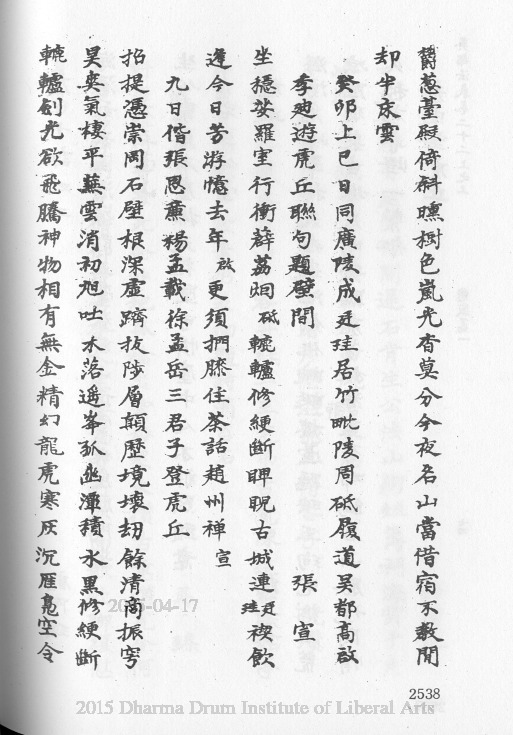 鬱蔥臺殿倚斜曛樹色嵐光杳莫分今夜名山當借宿不教閒
却半床雲
癸卯上巳日同廣陵成廷珪居竹毗陵周砥履道吳都高啟
季迪遊虎丘聯句題壁間　張宣
坐穩娑羅室行衝薜荔垣砥轆轤修綆斷睥睨古城連廷珪禊飲
逢今日芳游憶去年啟更須捫膝住茶話趙州禪宣
九日偕張思廉楊孟載徐孟岳三君子登虎丘
招提憑崇岡石壁根深虛躋扳陟層顛歷境壞劫餘清商振穹
昊奕氣棲平蕪雲消初旭吐木落遙峯孤幽潭積水黑修綆斷
轆轤劍光欲飛騰神物相有無金精幻龍虎寒灰沉雁鳧空令
2538
2015-04-17
2015 Dharma Drum Institute of Liberal Arts